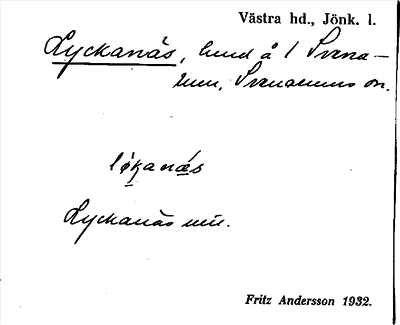 Västra hd., Jönk. l.
Lyckanäs, hmd å 1 Svena–
men, Svenamens sn.
løkanæs
Lyckanäs min.
Fritz Andersson 1932.